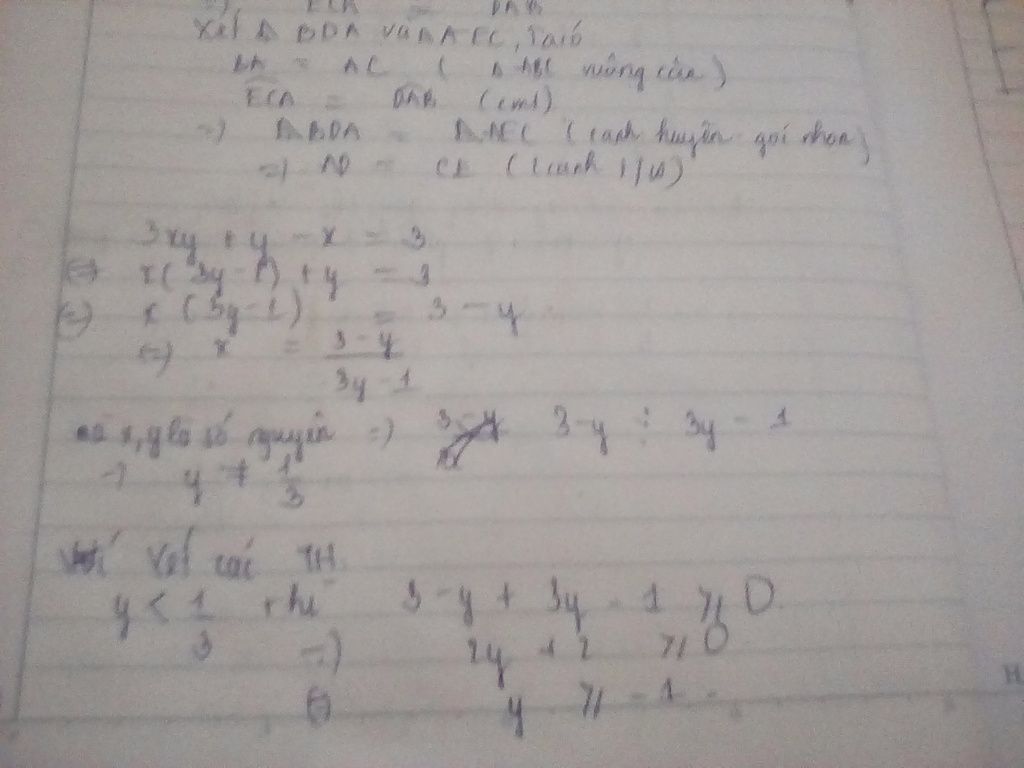 =) ECA = DAB
Xét Δ BDA và Δ AEC, ta có
BA = AC ( Δ ABC vuông cân )
ECA = DAB (cmt)
=) Δ BDA = Δ AEC ( cạnh huyền - góc nhọn )
=) AD = CE ( 2 cạnh t/ư )
3xy + y - x = 3
(=) x ( 3y - 1 ) + y = 3
(=) x ( 3y - 1 ) = 3 - y
(=) x = \frac{3 - y}{3y - 1}
x, y là số nguyên =) 3 - y ⋮ 3y - 1
=) y ≠ \frac{1}{3}
Xét các TH
y < \frac{1}{3} thì 3 - y + 3y - 1 ≥ 0
=) 2y + 2 ≥ 0
(=) y ≥ - 1